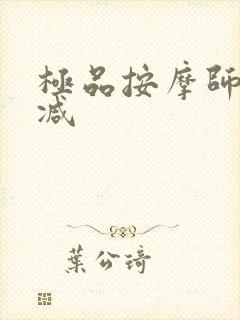 極品按摩師
減
葉公琦